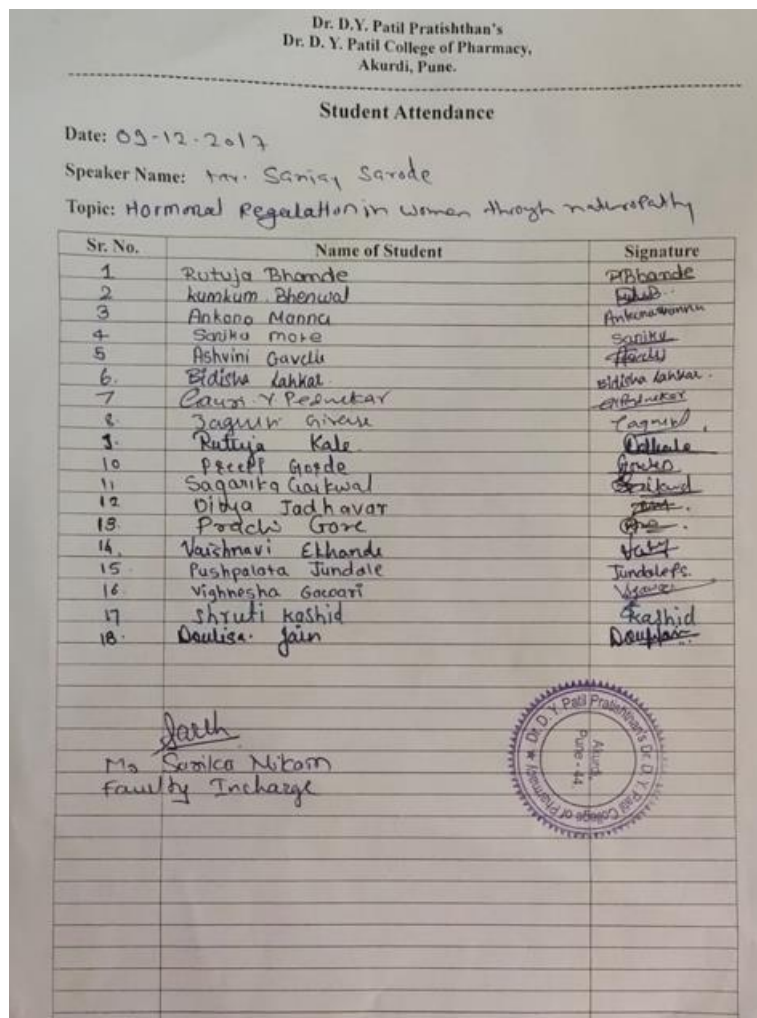 Dr. D.Y. Patil Pratishthan's
Dr. D. Y. Patil College of Pharmacy,
Akurdi, Pune.
Student Attendance
Date: 09-12-2017
Speaker Name: Sanjay Sarode
Topic: Hormonal Regulation in women through naturopathy
Sr. No. Name of Student Signature
1 Rutuja Bhande PBbande
2 kumkum Bhenwal
3 Ankona Manna Ankonamanna
4 Sarika more Sarika
5 Ashvini Gavelli
6. Bidisha Lahkar Bidisha Lahkar.
7 Gauri Y Pednekar
8. Jagruti Girase
9. Rutuja Kale
10 Preeti Gorde
11 Sagarika Gaikwad
12 Divya Jadhavar
13. Prachi Gore
14. Vaishnavi Ekhande
15. Pushpalata Jundale JundalePS.
16. Vighnesha Gowari
17 Shruti Kashid Kashid
18. Doulisa. Jain
Ms Sarika Nikam
Faculty Incharge
Dr. D. Y. Patil Pratishthan's Dr. D. Y. Patil College of Pharmacy
Akurdi,
Pune - 44.